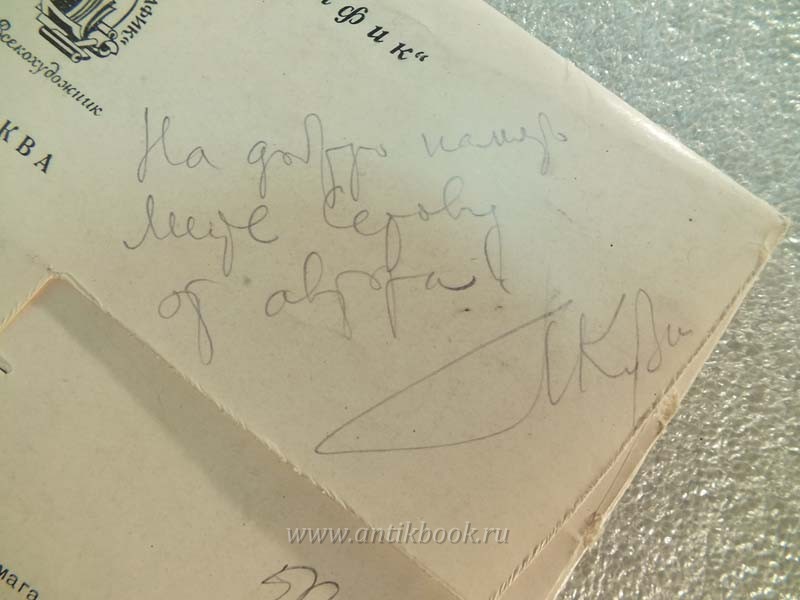 АФИК"
фик"
Всекохудожник
КВА
На добрую память
Серову
от автора!
www.antikbook.ru
мага